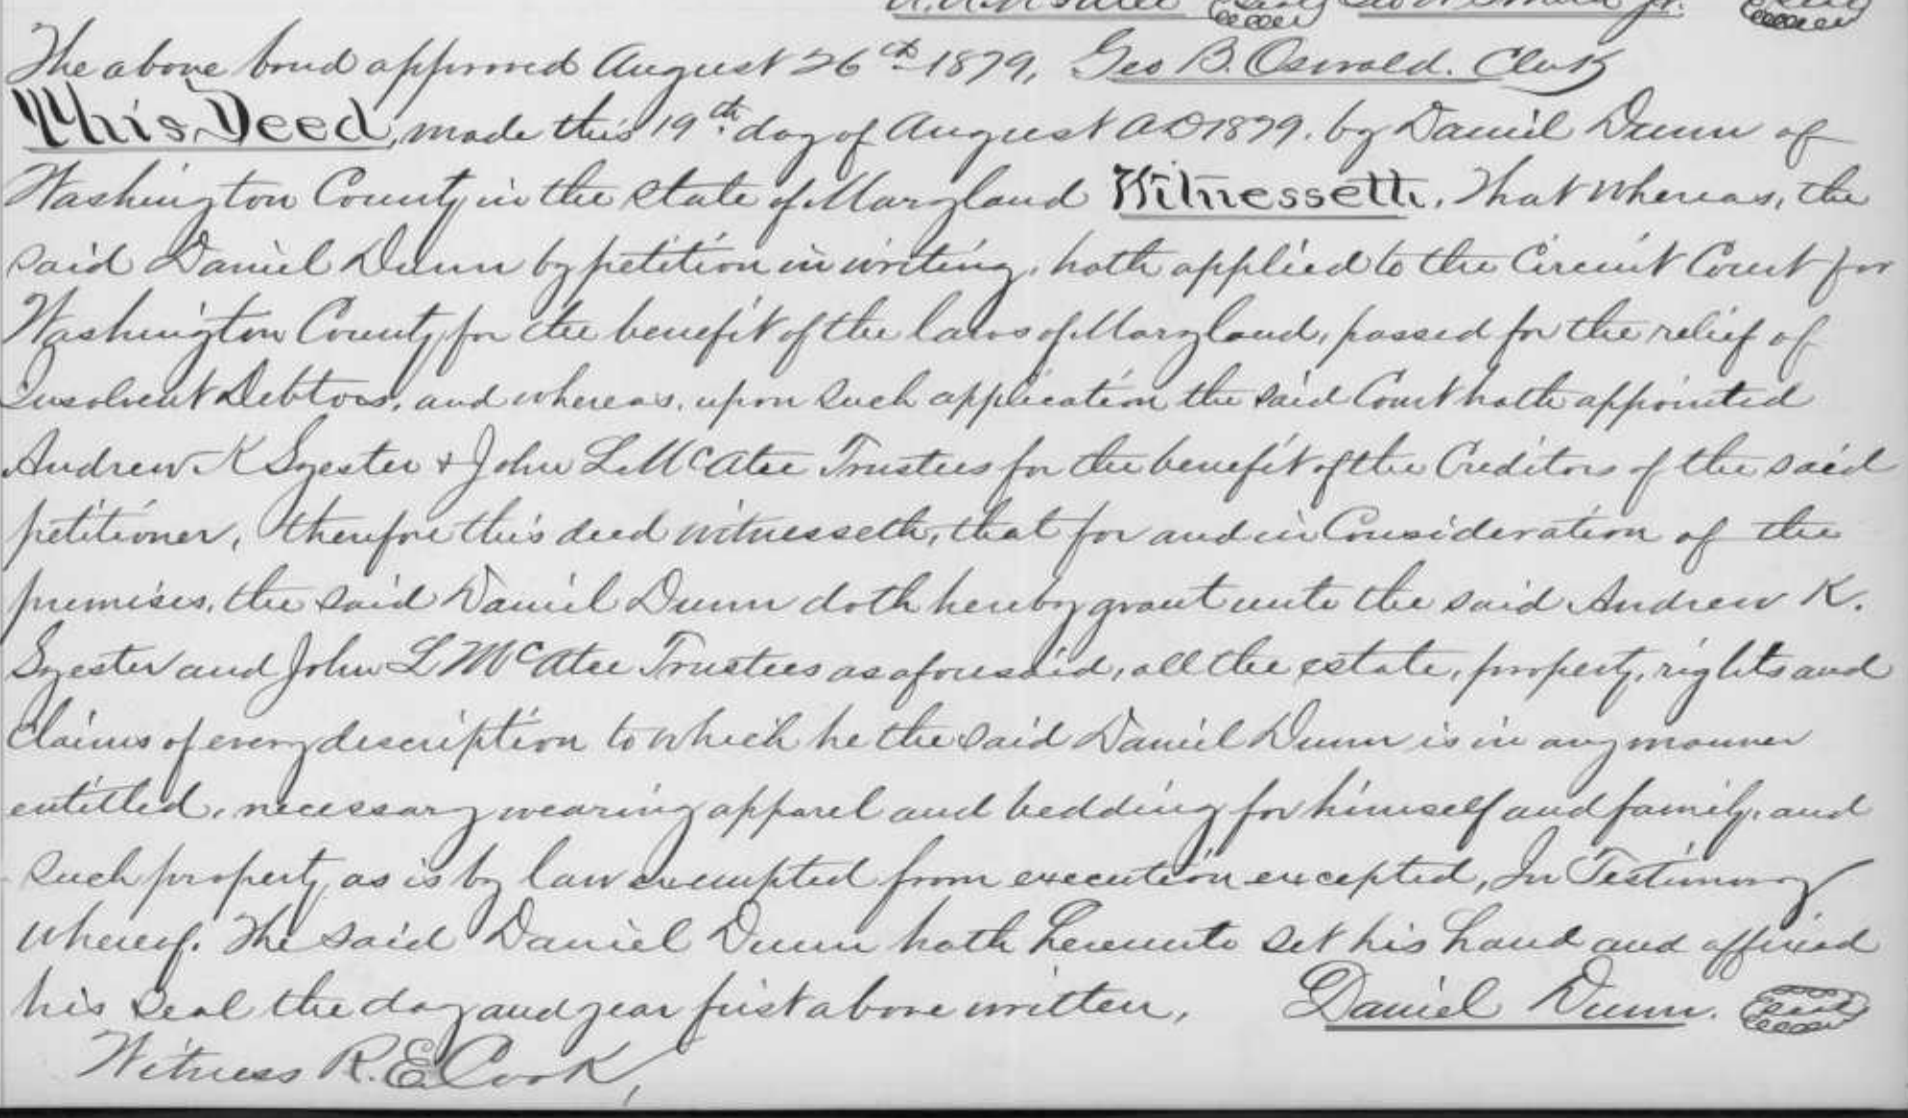 The above bond approved August 26th 1879, Geo B. Oswald. Clerk
This Deed, made this 19th day of August AD 1879. by Daniel Dunn of
Washington County in the State of Maryland Witnesseth. That whereas, the
said Daniel Dunn by petition in writing, hath applied to the Circuit Court for
Washington County for the benefit of the laws of Maryland, passed for the relief of
Insolvent Debtors, and whereas, upon such application the said Court hath appointed
Andrew K Syester & John L McAtee Trustees for the benefit of the Creditors of the said
petitioner, therefore this deed witnesseth, that for and in Consideration of the
premises, the said Daniel Dunn doth hereby grant unto the said Andrew K.
Syester and John L McAtee Trustees as aforesaid, all the estate, property, rights and
Claims of every description to which he the said Daniel Dunn is in any manner
entitled, necessary wearing apparel and bedding for himself and family, and
such property as is by law exempted from execution excepted, In Testimony
whereof. The said Daniel Dunn hath hereunto set his hand and affixed
his seal the day and year first above written, Daniel Dunn. Seal
Witness R. E. Cook,